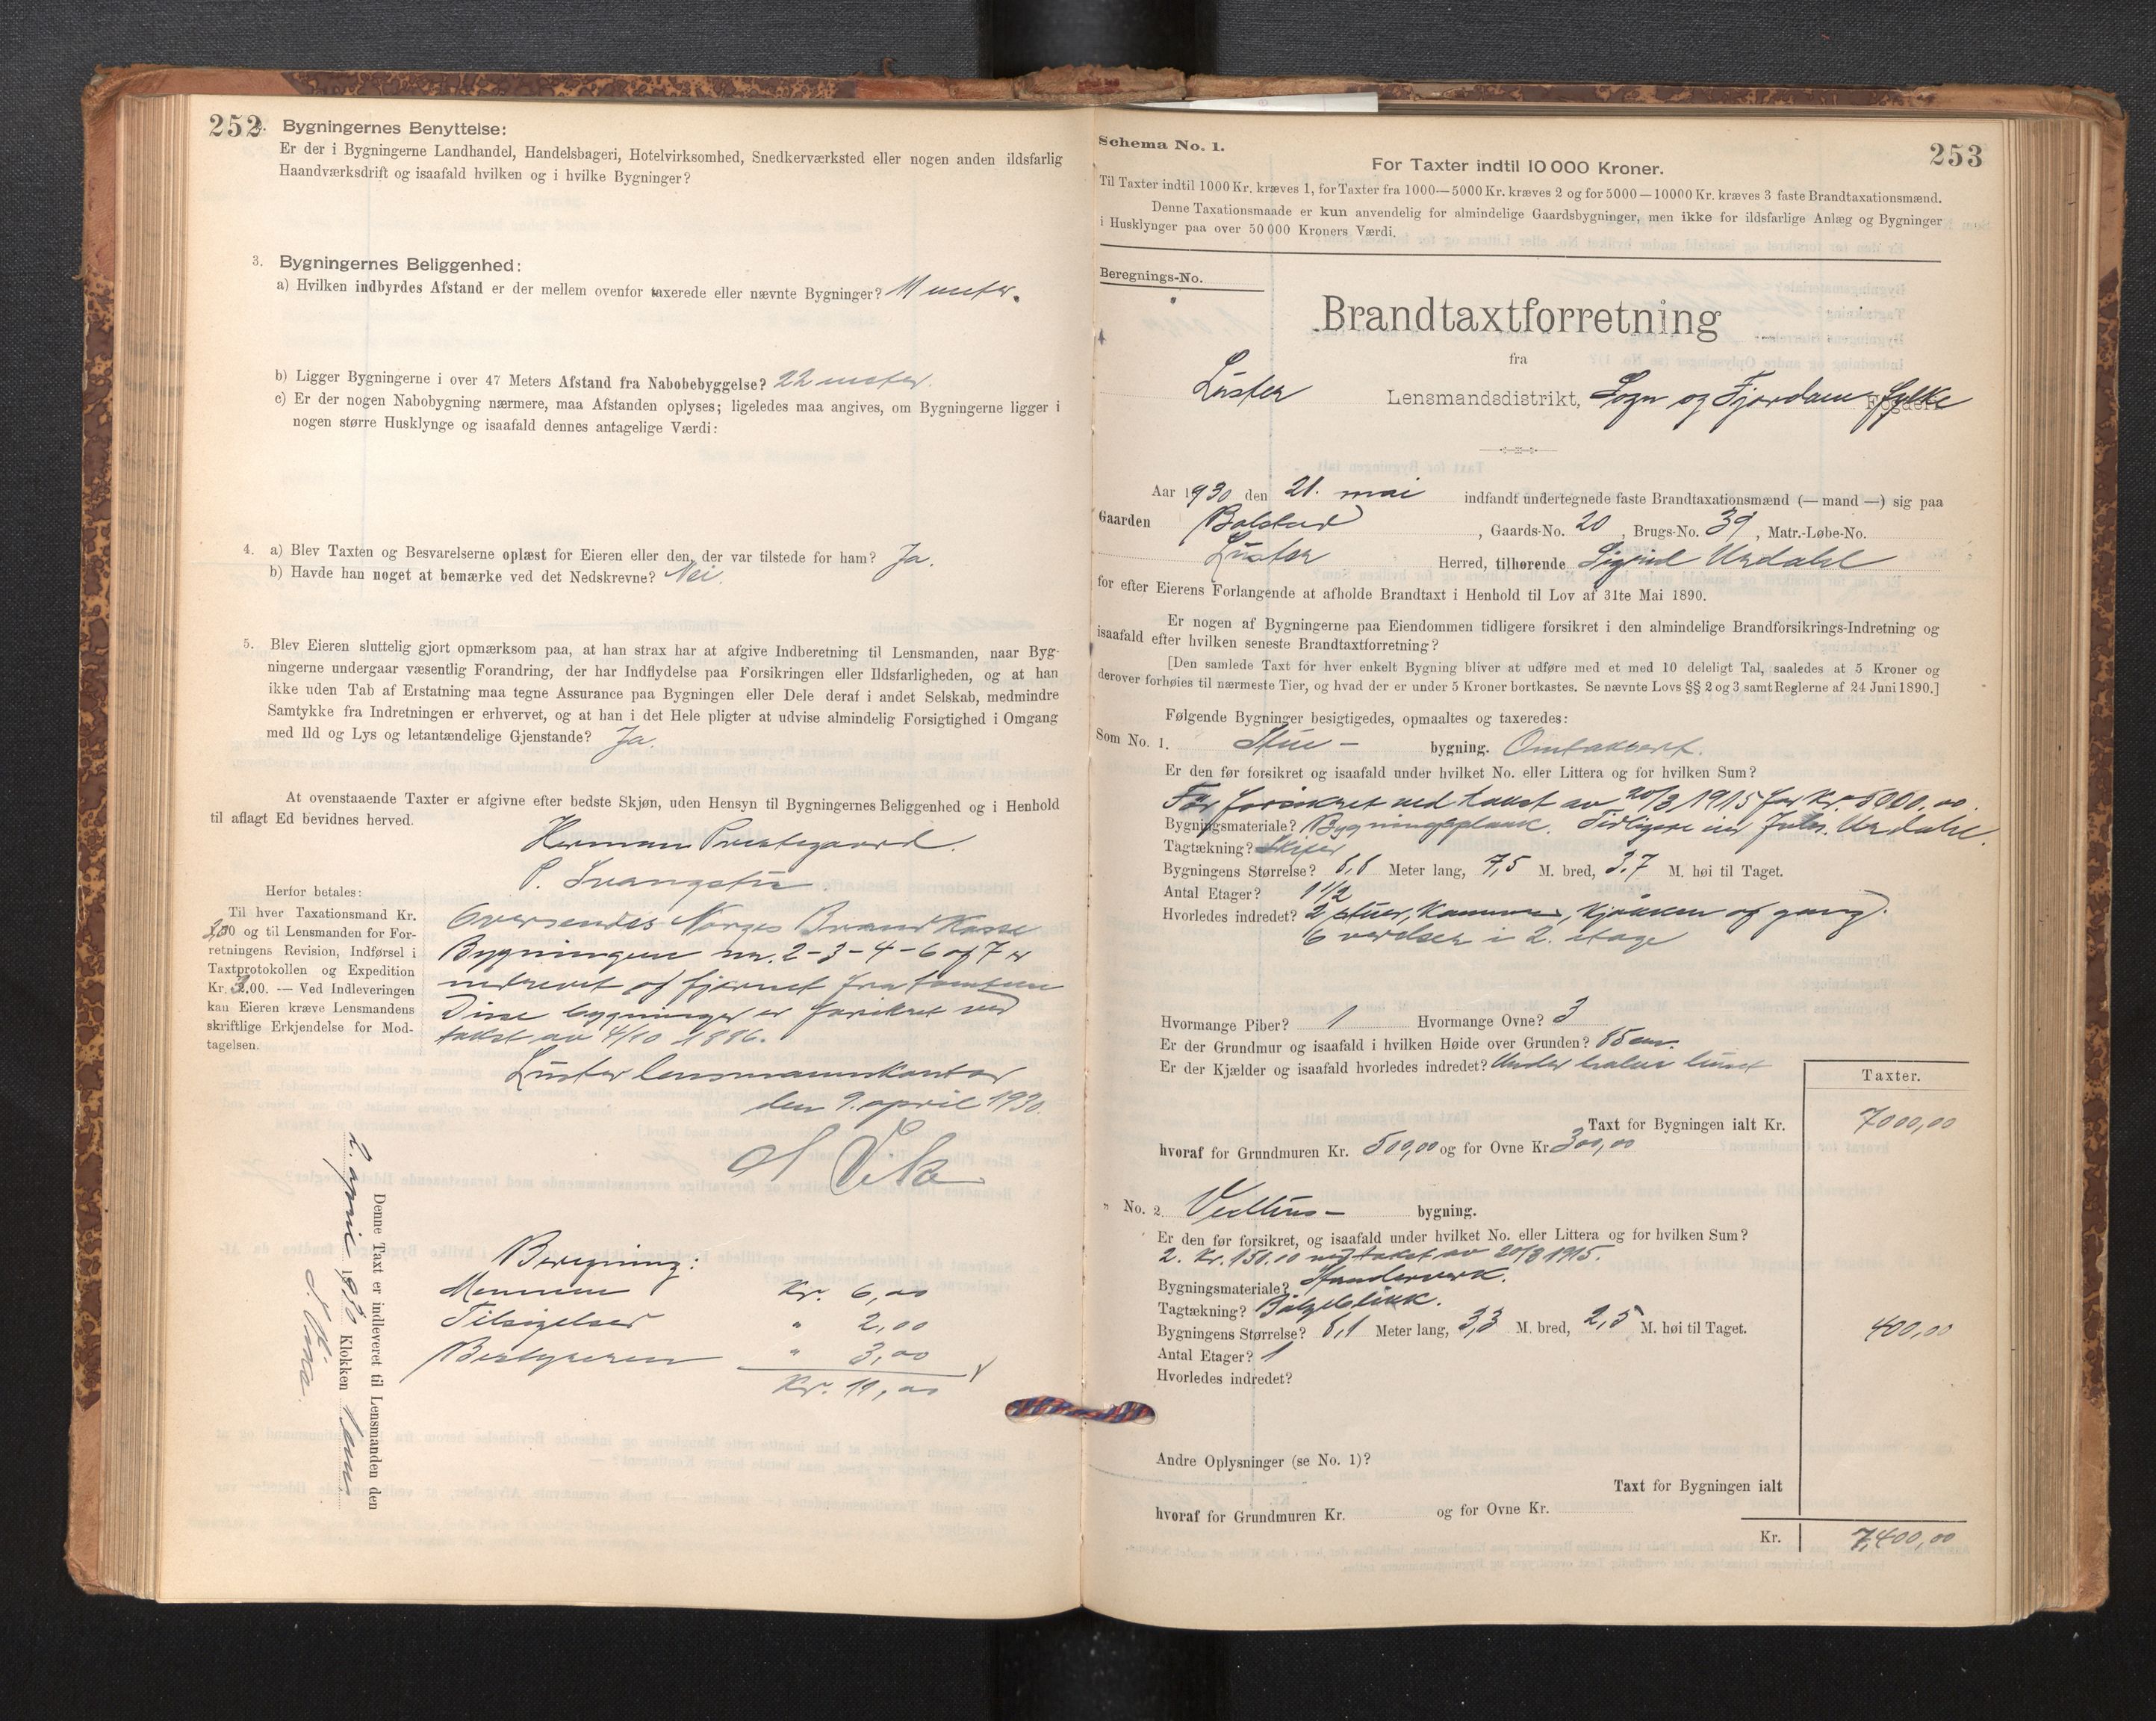 252
2. Bygningernes Benyttelse:
Er der i Bygningerne Landhandel, Handelsbageri, Hotelvirksomhed, Snedkerværksted eller nogen anden ildsfarlig
Haandværksdrift og isaafald hvilken og i hvilke Bygninger?
3. Bygningernes Beliggenhed:
a) Hvilken indbyrdes Afstand er der mellem ovenfor taxerede eller nævnte Bygninger? 11 meter.
b) Ligger Bygningerne i over 47 Meters Afstand fra Nabobebyggelse? 22 meter.
c) Er der nogen Nabobygning nærmere, maa Afstanden oplyses; ligeledes maa angives, om Bygningerne ligger i
nogen større Husklynge og isaafald dennes antagelige Værdi:
4. a) Blev Taxten og Besvarelserne oplæst for Eieren eller den, der var tilstede for ham? Ja.
b) Havde han noget at bemærke ved det Nedskrevne? Nei.
5. Blev Eieren sluttelig gjort opmærksom paa, at han strax har at afgive Indberetning til Lensmanden, naar Byg-
ningerne undergaar væsentlig Forandring, der har Indflydelse paa Forsikringen eller Ildsfarligheden, og at han
ikke uden Tab af Erstatning maa tegne Assurance paa Bygningen eller Dele deraf i andet Selskab, medmindre
Samtykke fra Indretningen er erhvervet, og at han i det Hele pligter at udvise almindelig Forsigtighed i Omgang
med Ild og Lys og letantændelige Gjenstande? Ja.
At ovenstaaende Taxter er afgivne efter bedste Skjøn, uden Hensyn til Bygningernes Beliggenhed og i Henhold
til aflagt Ed bevidnes herved.
Herman Prestegaard.
P. Svangstu
Herfor betales:
Til hver Taxationsmand Kr.
3,00 og til Lensmanden for For-
retningens Revision, Indførsel i
Taxtprotokollen og Expedition
Kr. 3.00. — Ved Indleveringen
kan Eieren kræve Lensmandens
skriftlige Erkjendelse for Mod-
tagelsen.
Oversendes Norges Brannkasse
Bygningene nr. 2-3-4-6 og 7 er
nedrevet og fjernet fra tomtene
Disse bygninger er forsikret ved
takst av 4/10 1886.
Luster lensmannskontor
den 9. april 1930.
Denne Taxt er indleveret til Lensmanden den
2. april 1930 Klokken
Beregning:
Mennene Kr. 6,00
Tilsigelser " 2,00
Bestyreren " 3,00
Kr. 11,00
253
Schema No. 1.
For Taxter indtil 10 000 Kroner.
Til Taxter indtil 1000 Kr. kræves 1, for Taxter fra 1000—5000 Kr. kræves 2 og for 5000—10000 Kr. kræves 3 faste Brandtaxationsmænd.
Denne Taxationsmaade er kun anvendelig for almindelige Gaardsbygninger, men ikke for ildsfarlige Anlæg og Bygninger
i Husklynger paa over 50 000 Kroners Værdi.
Beregnings-No.
Brandtaxtforretning
fra
Luster Lensmandsdistrikt, Sogn og Fjordane fylke Fogderi
Aar 1930 den 21. mai indfandt undertegnede faste Brandtaxationsmænd (— mand —) sig paa
Gaarden Bolstad, Gaards-No. 20, Brugs-No. 39, Matr.-Løbe-No.
Luster Herred, tilhørende Sigrid Urdahl
for efter Eierens Forlangende at afholde Brandtaxt i Henhold til Lov af 31te Mai 1890.
Er nogen af Bygningerne paa Eiendommen tidligere forsikret i den almindelige Brandforsikrings-Indretning og
isaafald efter hvilken seneste Brandtaxtforretning?
[Den samlede Taxt for hver enkelt Bygning bliver at udføre med et med 10 deleligt Tal, saaledes at 5 Kroner og
derover forhøies til nærmeste Tier, og hvad der er under 5 Kroner bortkastes. Se nævnte Lovs §§ 2 og 3 samt Reglerne af 24 Juni 1890.]
Følgende Bygninger besigtigedes, opmaaltes og taxeredes:
Som No. 1. Stue- bygning. Omtaksert.
Er den før forsikret og isaafald under hvilket No. eller Littera og for hvilken Sum?
Før forsikret ved takst av 20/3 1915 for Kr. 5000,00.
Bygningsmateriale? Bygningsplank. Tidligere eier Johs. Urdahl.
Tagtækning? Skifer
Bygningens Størrelse? 8,8 Meter lang, 7,5 M. bred, 3.7 M. høi til Taget.
Antal Etager? 1 1/2
Hvorledes indredet? 2 stuer, kammer, kjøkken og gang.
6 værelser i 2. etage
Hvormange Piber? 1 Hvormange Ovne? 3
Er der Grundmur og isaafald i hvilken Høide over Grunden? 85 cm.
Er der Kjælder og isaafald hvorledes indredet? Under halve huset
Taxter.
Taxt for Bygningen ialt Kr. 7000,00
hvoraf for Grundmuren Kr. 500,00 og for Ovne Kr. 300,00
" No. 2. Vedhus- bygning.
Er den før forsikret, og isaafald under hvilket No. eller Littera og for hvilken Sum?
2. Kr. 150.00 ved takst av 20/3 1915.
Bygningsmateriale? Stenderverk.
Tagtækning? Bølgeblikk.
Bygningens Størrelse? 8,1 Meter lang, 3,3 M. bred, 2,5 M. høi til Taget. 400,00
Antal Etager? 1
Hvorledes indredet?
Andre Oplysninger (se No. 1)?
Taxt for Bygningen ialt
hvoraf for Grundmuren Kr. og for Ovne Kr.
Kr. 7,400,00